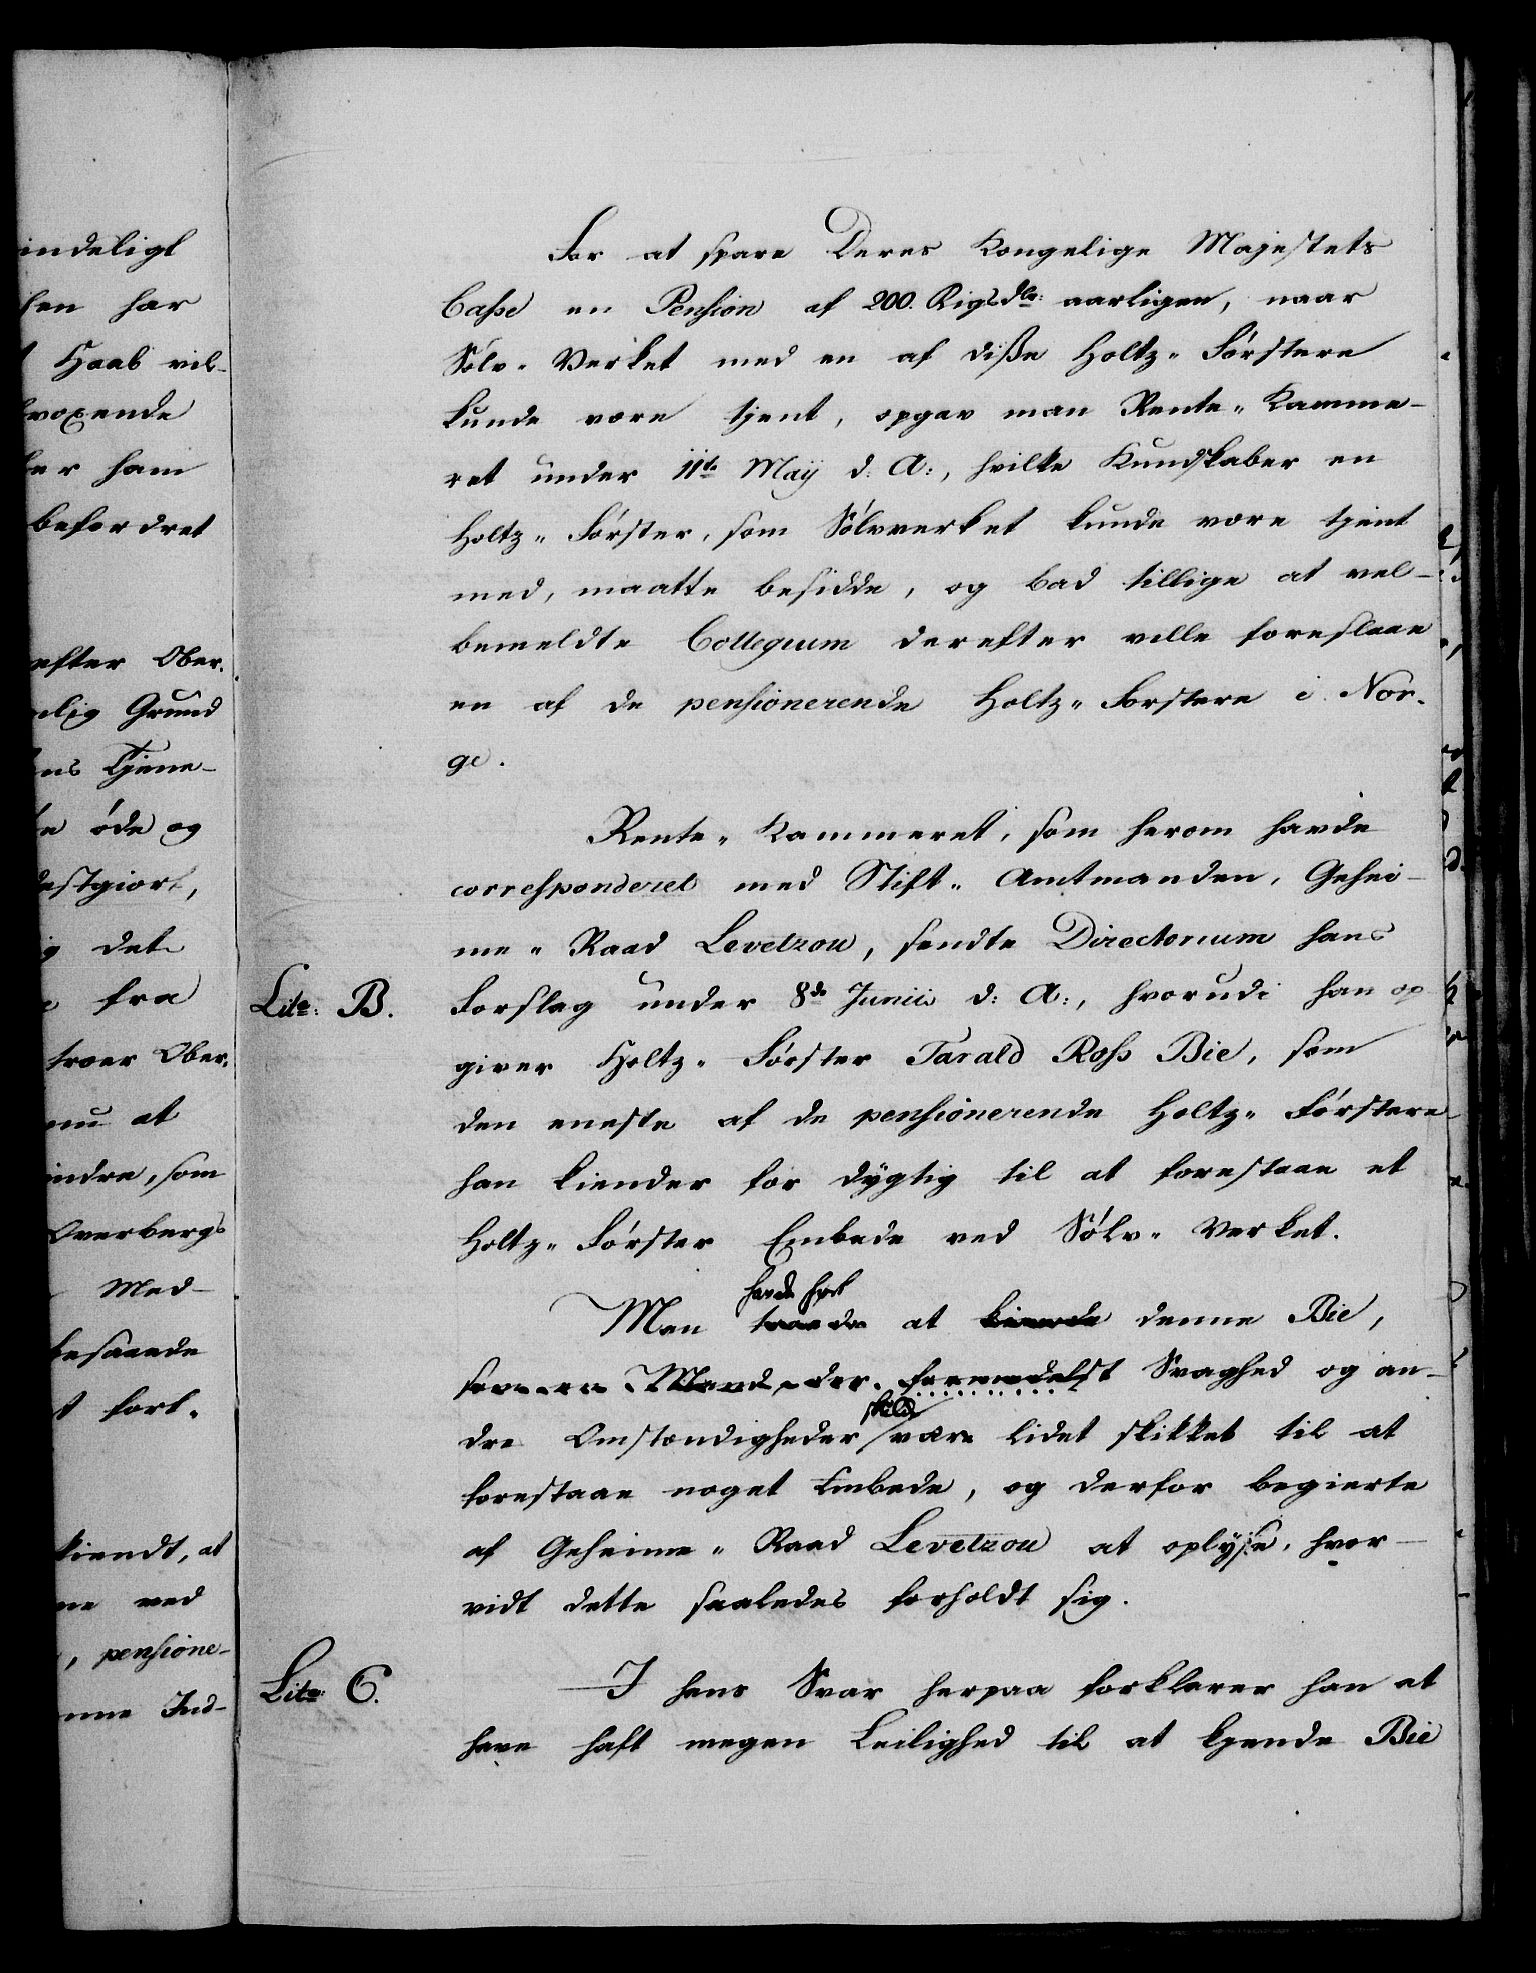 indeligt
sen har
Haab vil-
voxende
ter ham
befordret
efter Ober-
elig Grund
ns Tjene-
øde og
destgiort,
det
fra
troer Ober-
nu at
indre, som
Overbergs
Med-
besaaede
fort-
kiendt, at
ne ved
, pensione-
nne Ind-
For at spare Deres Kongelige Majestets
Casse en Pension af 200. Rigsdlr: aarligen, naar
Sølv-Verket med en af disse Holtz-Førstere
kunde være tjent, opgav man Rente-Kamme-
ret under 11te Maij d: A:, hvilke Kundskaber en
Holtz-Førster, som Sølvverket kunde være tjent
med, maatte besidde, og bad tillige at vel-
bemeldte Collegium derefter ville foreslaae
en af de pensionerende Holtz-Forstere i Nor-
ge.
Rente-Kammeret, som herom havde
corresponderet med Stift-Amtmanden, Gehei-
me-Raad Levetzou, sendte Directorium hans
Litr: B. Forslag under 8de Junii d: A:, hvorudi han op-
giver Holtz-Førster Tarald Ross Bie, som
den eneste af de pensionerende Holtz-Førstere
han kiender for dygtig til at forestaae et
Holtz-Førster Embede ved Sølv-Verket.
havde hørt
Man troede at kiende denne Bie,
som en Mand, der formedelst Svaghed og an-
skulde
dre Omstændigheder være lidet skikket til at
forestaae noget Embede, og derfor begierte
af Geheime-Raad Levetzou at oplyse, hvor-
vidt dette saaledes forholdt sig.
Litr: C. I hans Svar herpaa forklarer han at
have haft megen Leilighed til at kjende Bie